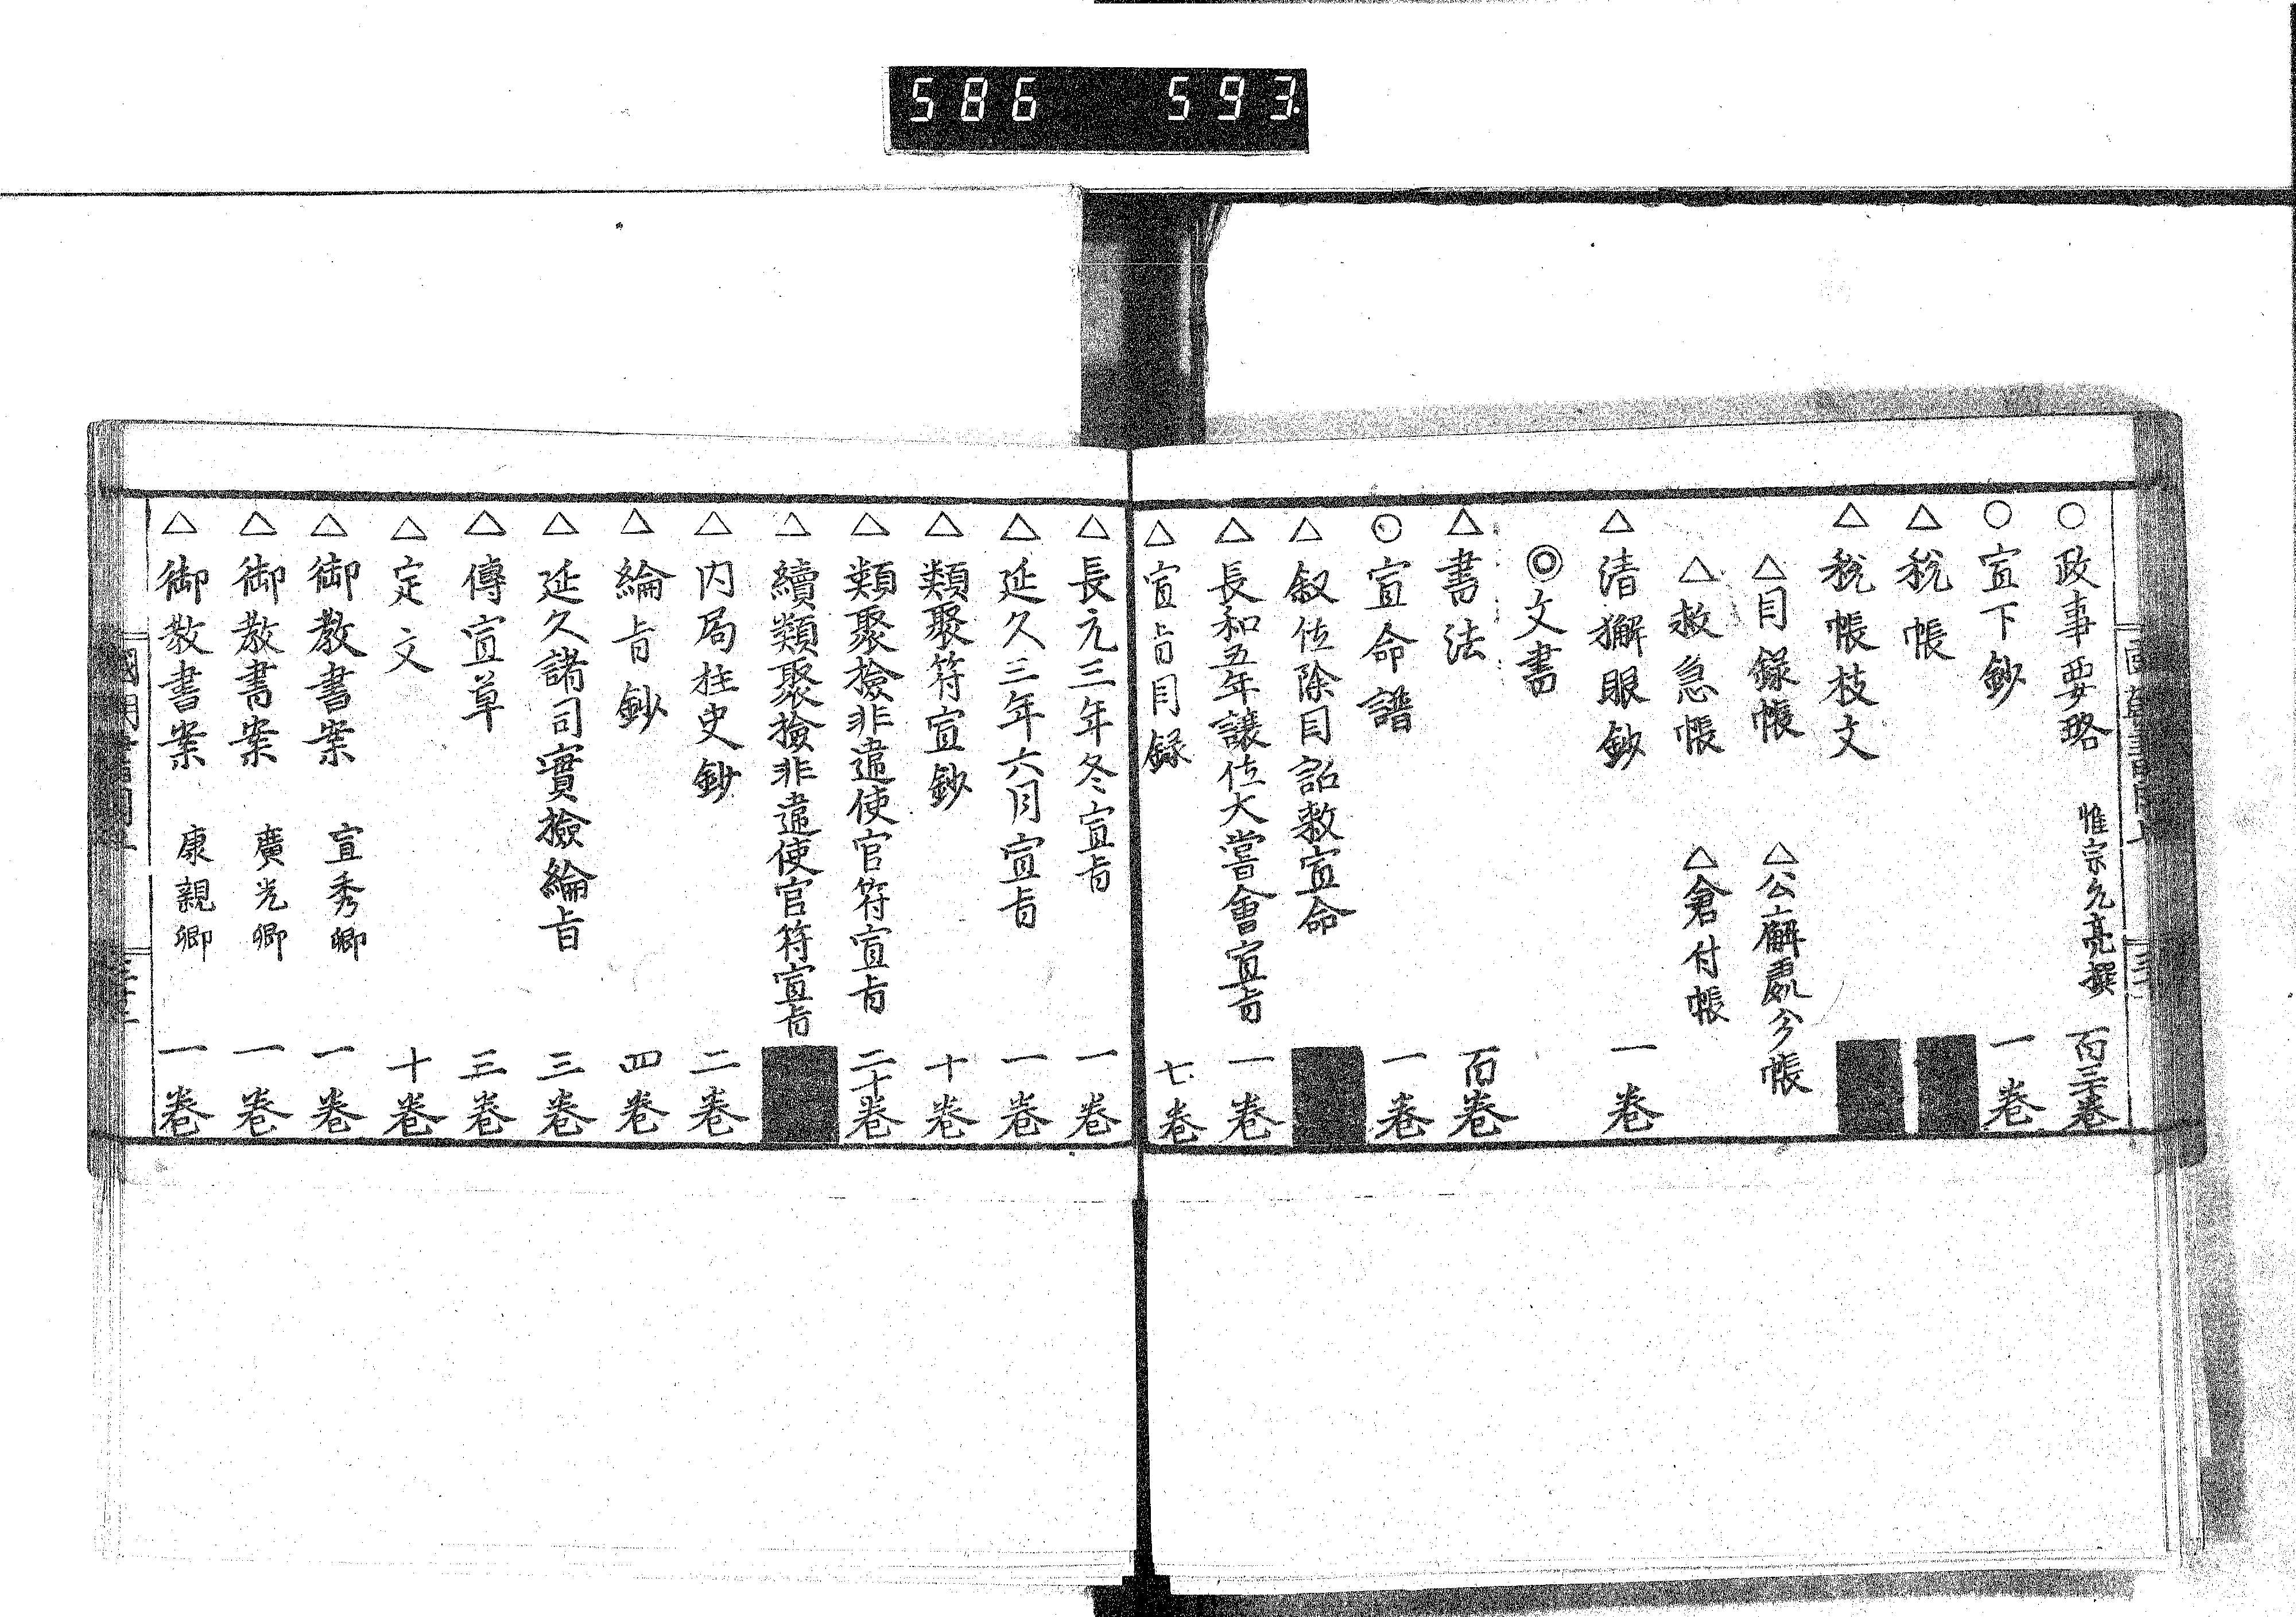 586 593
○政事要略 惟宗允亮撰 百三十卷
○宣下鈔 一卷
△税帳
△税帳枝文
△目録帳 △公廨處分帳
△救急帳 △倉付帳
△清獬眼鈔 一卷
◎文書
△書法 百卷
○宣命譜 一卷
△叙位除目詔敕宣命
△長和五年讓位大嘗會宣旨 一卷
△宣旨目録 七卷
△長元三年冬宣旨 一卷
△延久三年六月宣旨 一卷
△類聚符宣鈔 十卷
△類聚撿非違使官符宣旨 二十卷
△續類聚撿非違使官符宣旨
△内局柱史鈔 二卷
△綸旨鈔 四卷
△延久諸司實撿綸旨 三卷
△傳宣草 三卷
△定文 十卷
△御教書案 宣秀卿 一卷
△御教書案 廣光卿 一卷
△御教書案 康親卿 一卷